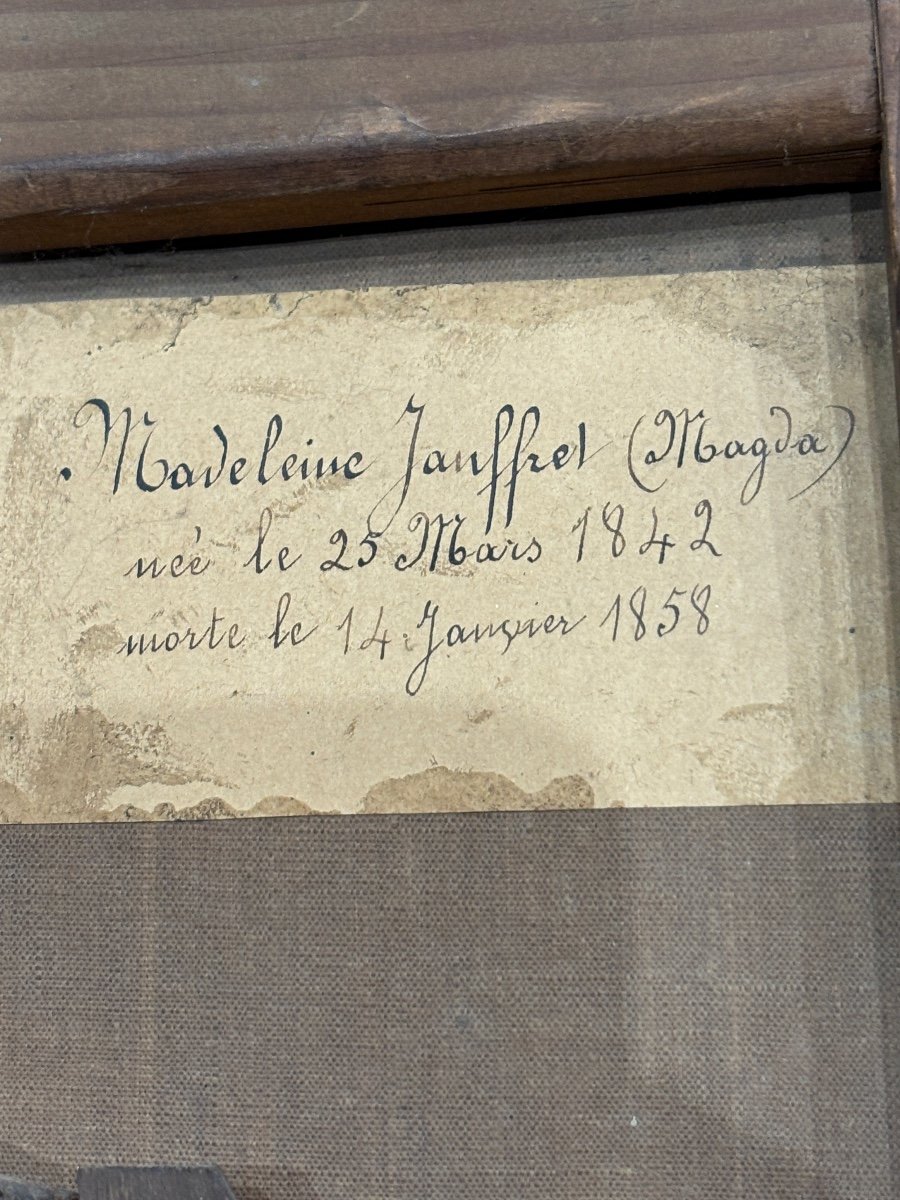 Madeleine Jauffret (Magda)
née le 25 Mars 1842
morte le 14 Janvier 1858